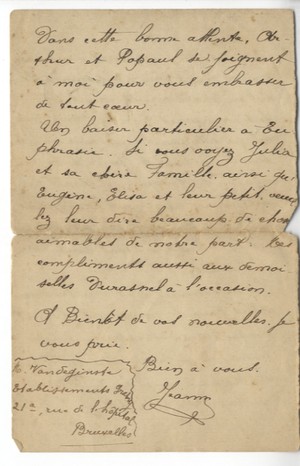 Dans cette bonne attente, Ar-
thur et Popaul se joignent
à moi pour vous embrasser
de tout cœur.
Un baiser particulier à Eu-
phrasie. Si vous voyez Julia
et sa chère Famille, ainsi que
Eugène, Elisa et leur petit, veuil-
lez leur dire beaucoup de choses
aimables de notre part. Des
compliments aussi aux demoi-
selles à l'occasion.
A Bientôt de vos nouvelles, je
vous prie.
Bien à vous.
Jeanne
Vandeginste
Etablissements
21a, rue de l'hôpital
Bruxelles